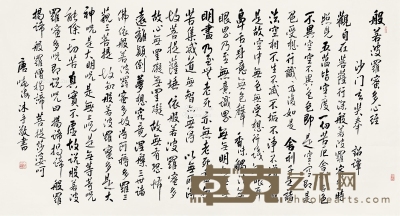 般若波羅蜜多心經
沙門玄奘奉 詔譯
觀自在菩薩行深般若波羅蜜多時
照見五蘊皆空度一切苦厄舍利子色
不異空空不異色色即是空空即是色
受想行識亦復如是舍利子是諸
法空相不生不滅不垢不淨不增不減
是故空中無色無受想行識無眼耳
鼻舌身意無色聲香味觸法無
眼界乃至無意識界無無明亦無無
明盡乃至無老死亦無老死盡無
苦集滅道無智亦無得以無所得
故菩提薩埵依般若波羅蜜多
故心無罣礙無罣礙故無有恐怖
遠離顛倒夢想究竟涅槃三世諸
佛依般若波羅蜜多故得阿耨多羅三
藐三菩提故知般若波羅蜜多是大
神咒是大明咒是無上咒是無等等咒
能除一切苦真實不虛故說般若波
羅蜜多咒即說咒曰揭諦揭諦般羅
揭諦般羅僧揭諦菩提薩婆訶
沐手敬書